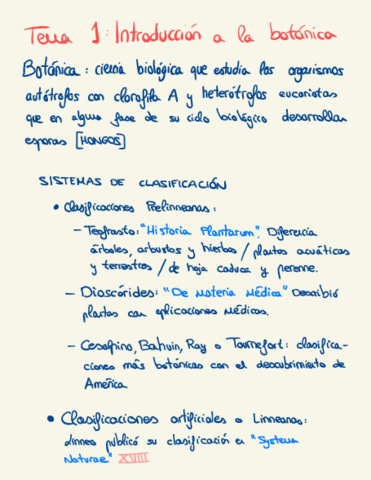 Tema 1: Introducción a la botánica
Botánica: ciencia biológica que estudia los organismos
autótrofos con clorofila A y heterótrofos eucariotas
que en alguna fase de su ciclo biológico desarrollan
esporas [HONGOS]
SISTEMAS DE CLASIFICACIÓN
• Clasificaciones Prelinneanas:
- Teofrasto: "Historia Plantarum". Diferencia
árboles, arbustos y hierbas / plantas acuáticas
y terrestres / de hoja caduca y perenne.
- Dioscórides: "De Materia Médica" Describió
plantas con aplicaciones médicas.
- Cesalpino, Bahuin, Ray o Tournefort: clasifica-
ciones más botánicas con el descubrimiento de
América
• Clasificaciones artificiales o Linneanas:
Linneo publicó su clasificación en "Systema
Naturae" XVIII